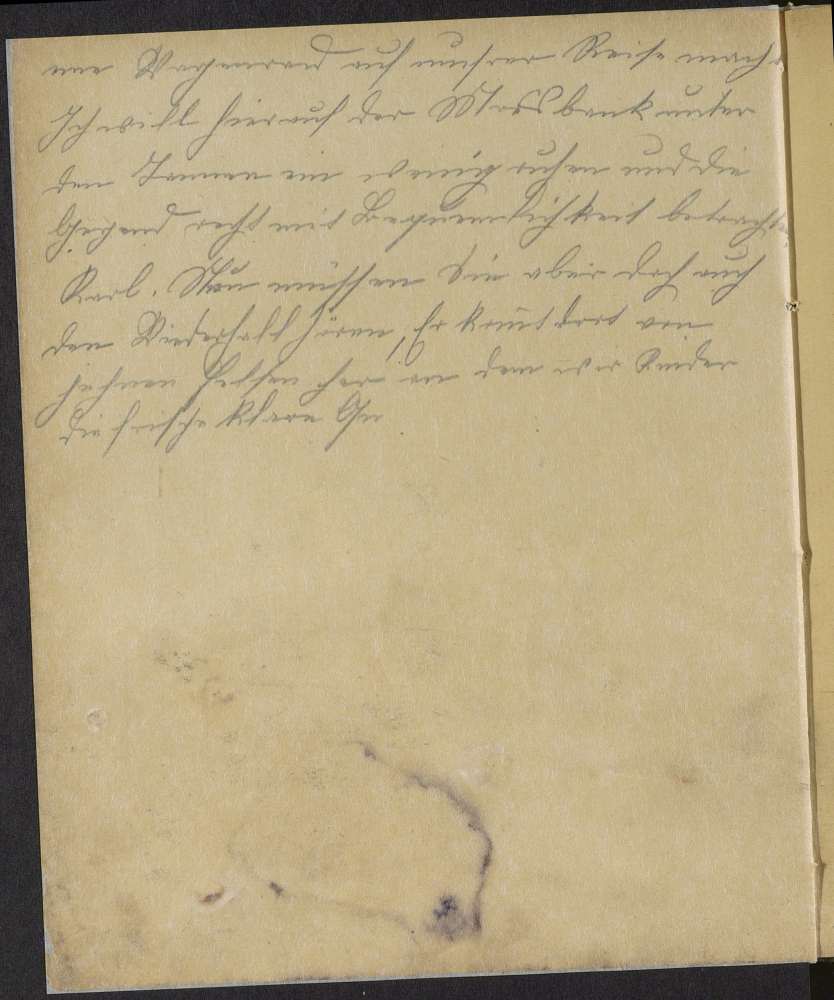 am Wagenrad auf unsrer Reise mach
Ich will hier auf der Moosbank unter
den Tannen ein wenig ruhen und die
Gegend recht mit Bequemlichkeit betracht
Karl. Nun müssen Sie aber doch auch
den Wiederhall hören, Er kom̅t dort von
jehnen Felsen her an dem wir Kinder
die frische klare